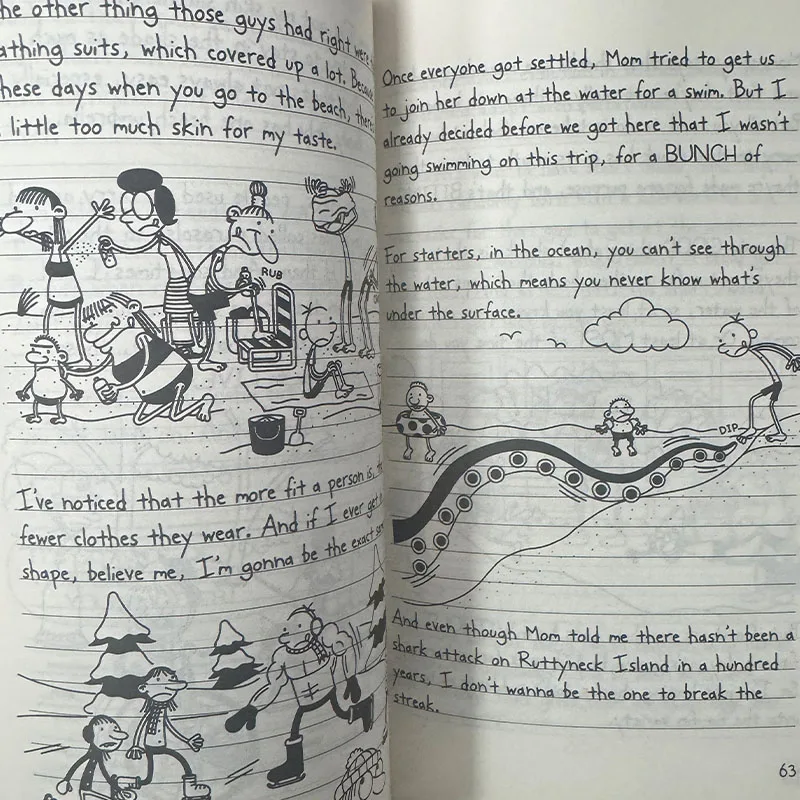 he other thing those guys had right were
athing suits, which covered up a lot. Because
hese days when you go to the beach, there
little too much skin for my taste.
RUB
I've noticed that the more fit a person is,
fewer clothes they wear. And if I ever get
shape, believe me, I'm gonna be the exact
Once everyone got settled, Mom tried to get us
to join her down at the water for a swim. But I
already decided before we got here that I wasn't
going swimming on this trip, for a BUNCH of
reasons.
For starters, in the ocean, you can't see through
the water, which means you never know what's
under the surface.
DIP
And even though Mom told me there hasn't been a
shark attack on Ruttyneck Island in a hundred
years, I don't wanna be the one to break the
streak.
63